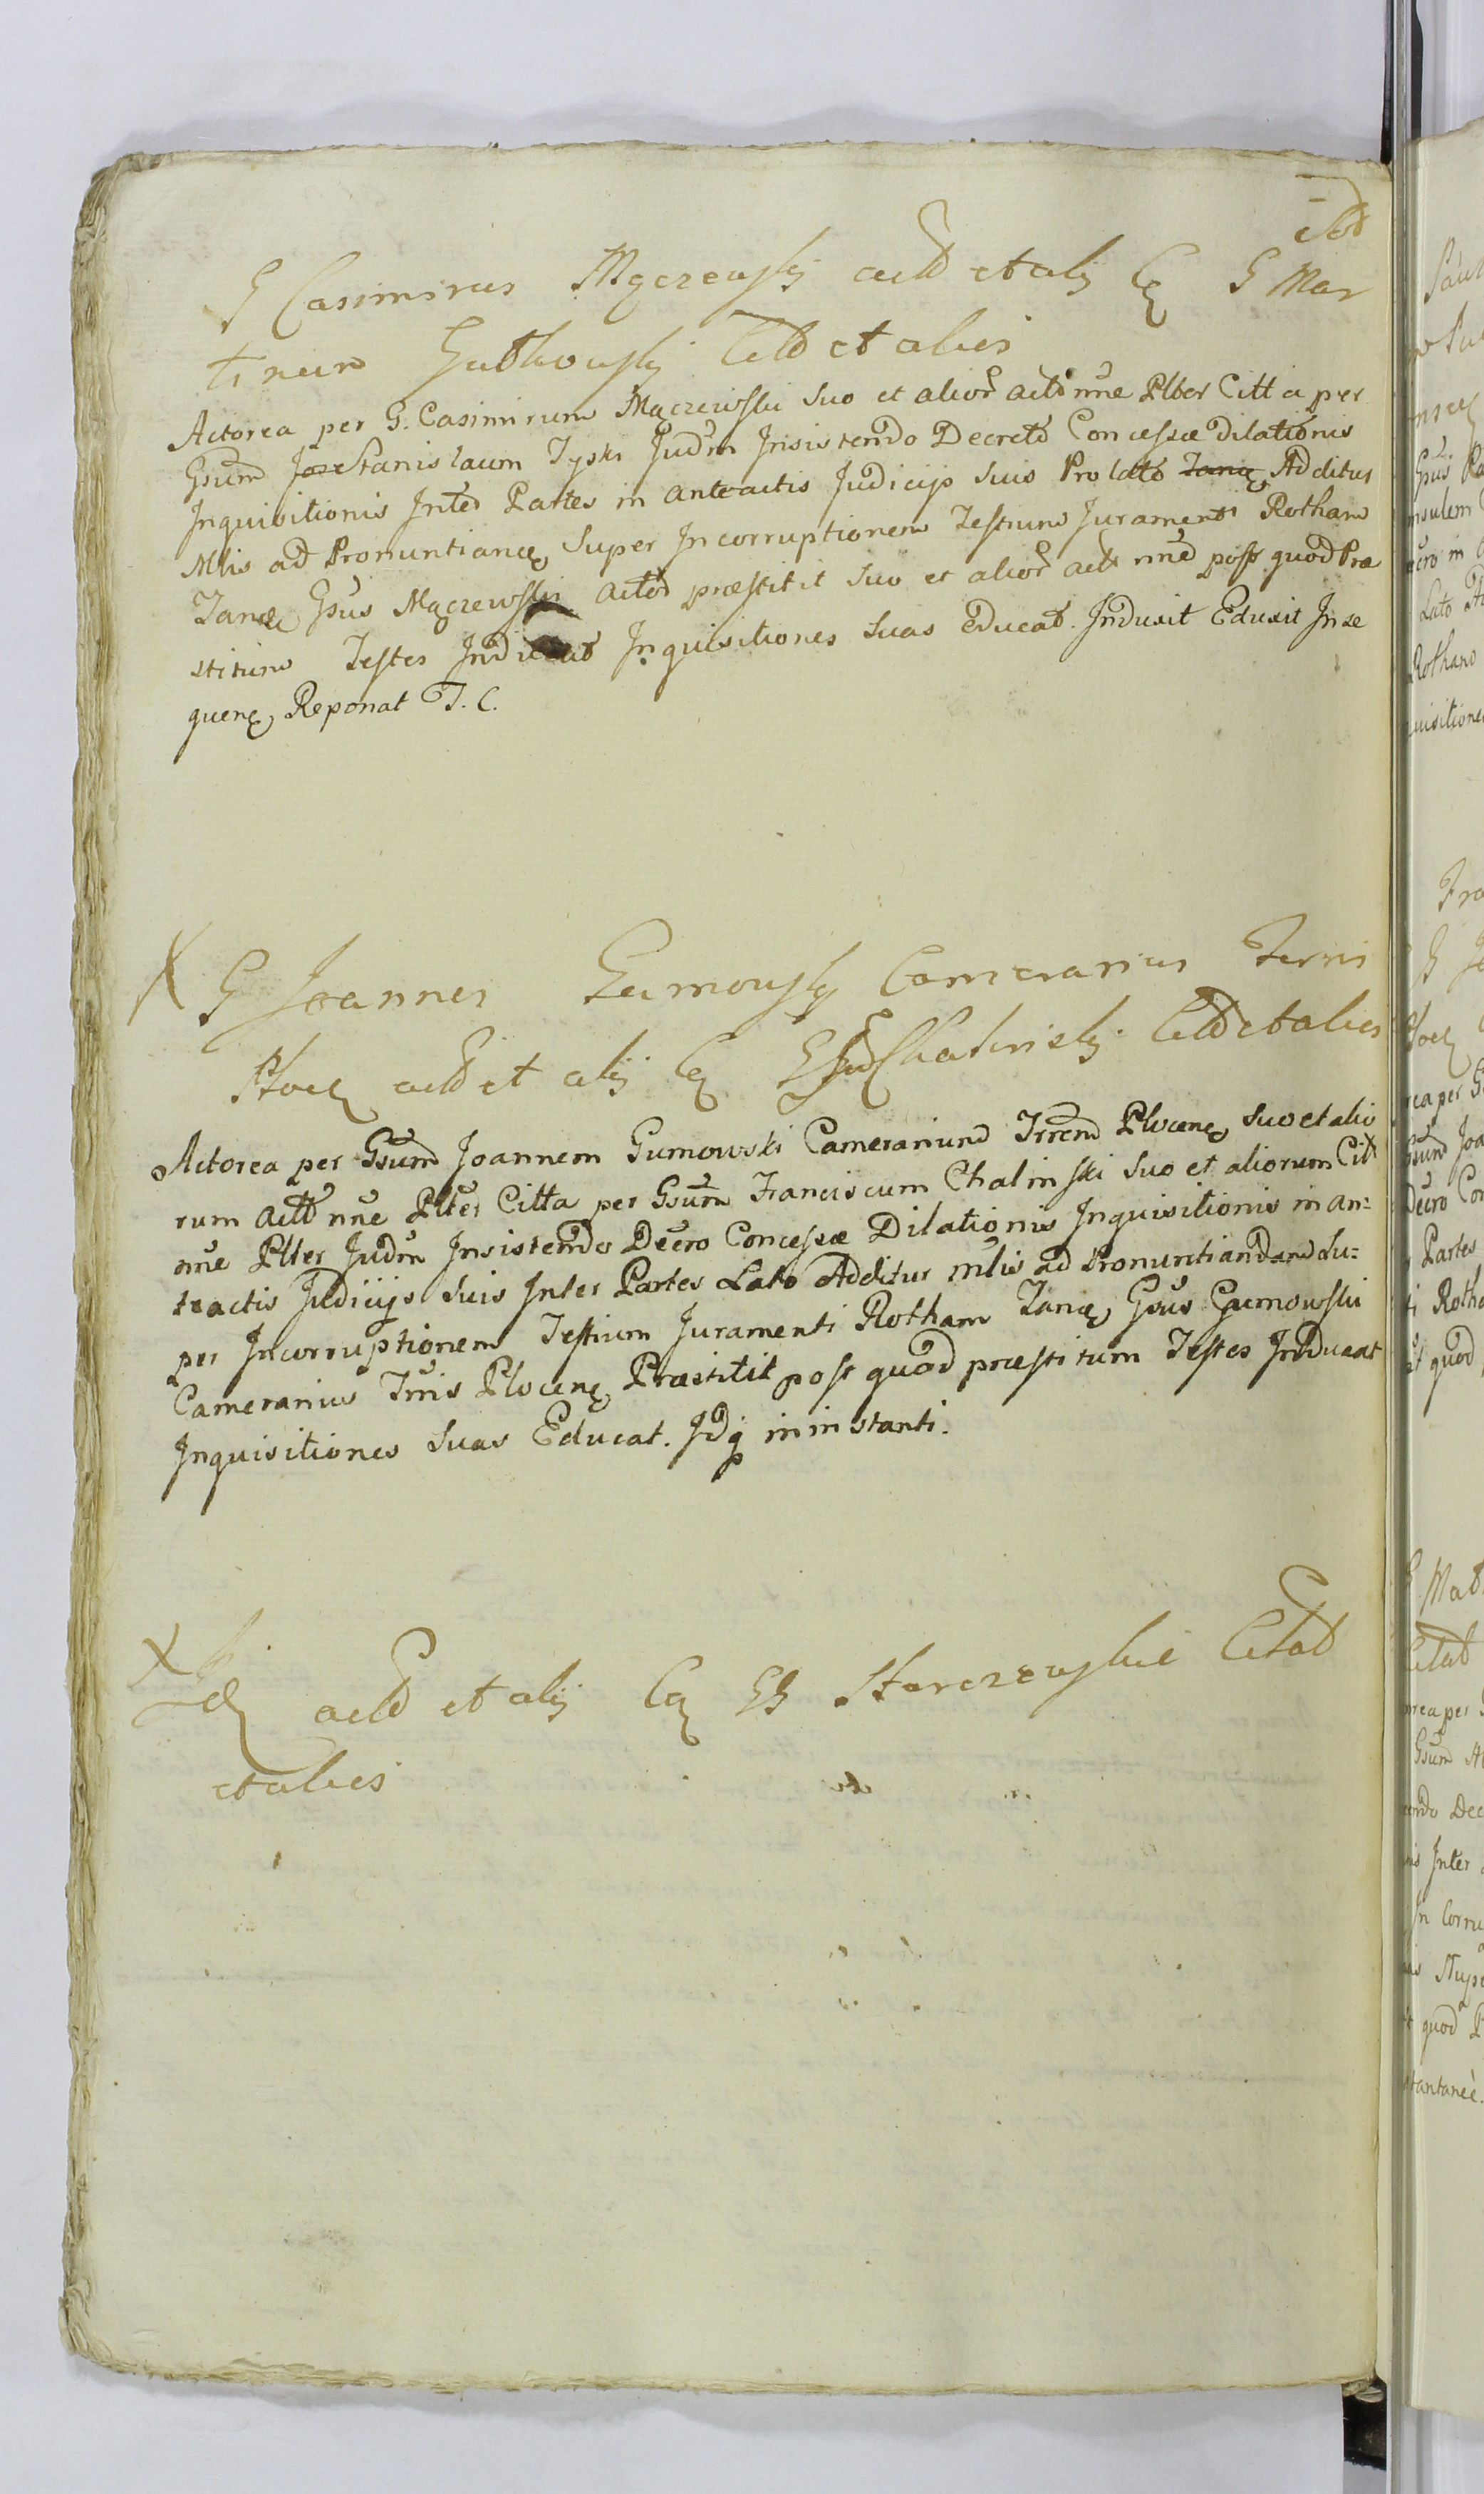 G Casimirus Mączewsky actt et alij Cq G Mar
tinum Gutkowsky Citt et alies
Actorea per G. Casimirum Mączewski Suo et alior actt nne Plter Citt a per
Gsum Stanislaum Tyski Judm Insistendo Decreto Concessæ Dilationis
Inquisitionis Inter Partes in anteactis Judicijs Suis Pro lato Tanq Additus
Mlis ad Pronuntianq Super Incorruptionem Testium Juramenti Rotham
Tanq Gsus Mączewski actor præstitit Suo et alior actt nne post quod Præ
stitum Testes Inducat Inquisitiones Suas Educat. Induxit Eduxit Inse
quenq Reponat T. C.
X G Joannes Gumowsky Camerarius Terris
Plocq actt et alij Cq G Chalinsky Citt et alies
Actorea per Gsum Joannem Gumowski Camerarium Trrem Plocenq Suo et alio
rum actt nne Plter Citta per Gsum Franciscum Chalinski Suo et aliorum Citt
nne Plter Judm Insistendo Decro Concessæ Dilationis Inquisitionis in an=
teactis Judicijs Suis Inter Partes Lato Additur Mlis ad Pronuntiandam Su=
per Incorruptionem Testium Juramenti Rotham Tanq Gsus Gumowski
Camerarius Trris Plocenq Præstitit post quod præstitum Testes Inducat
Inquisitiones Suas Educat. Idq in instanti.
X Idq actt et alij Cq GG Skarczewskie Citat
et alies